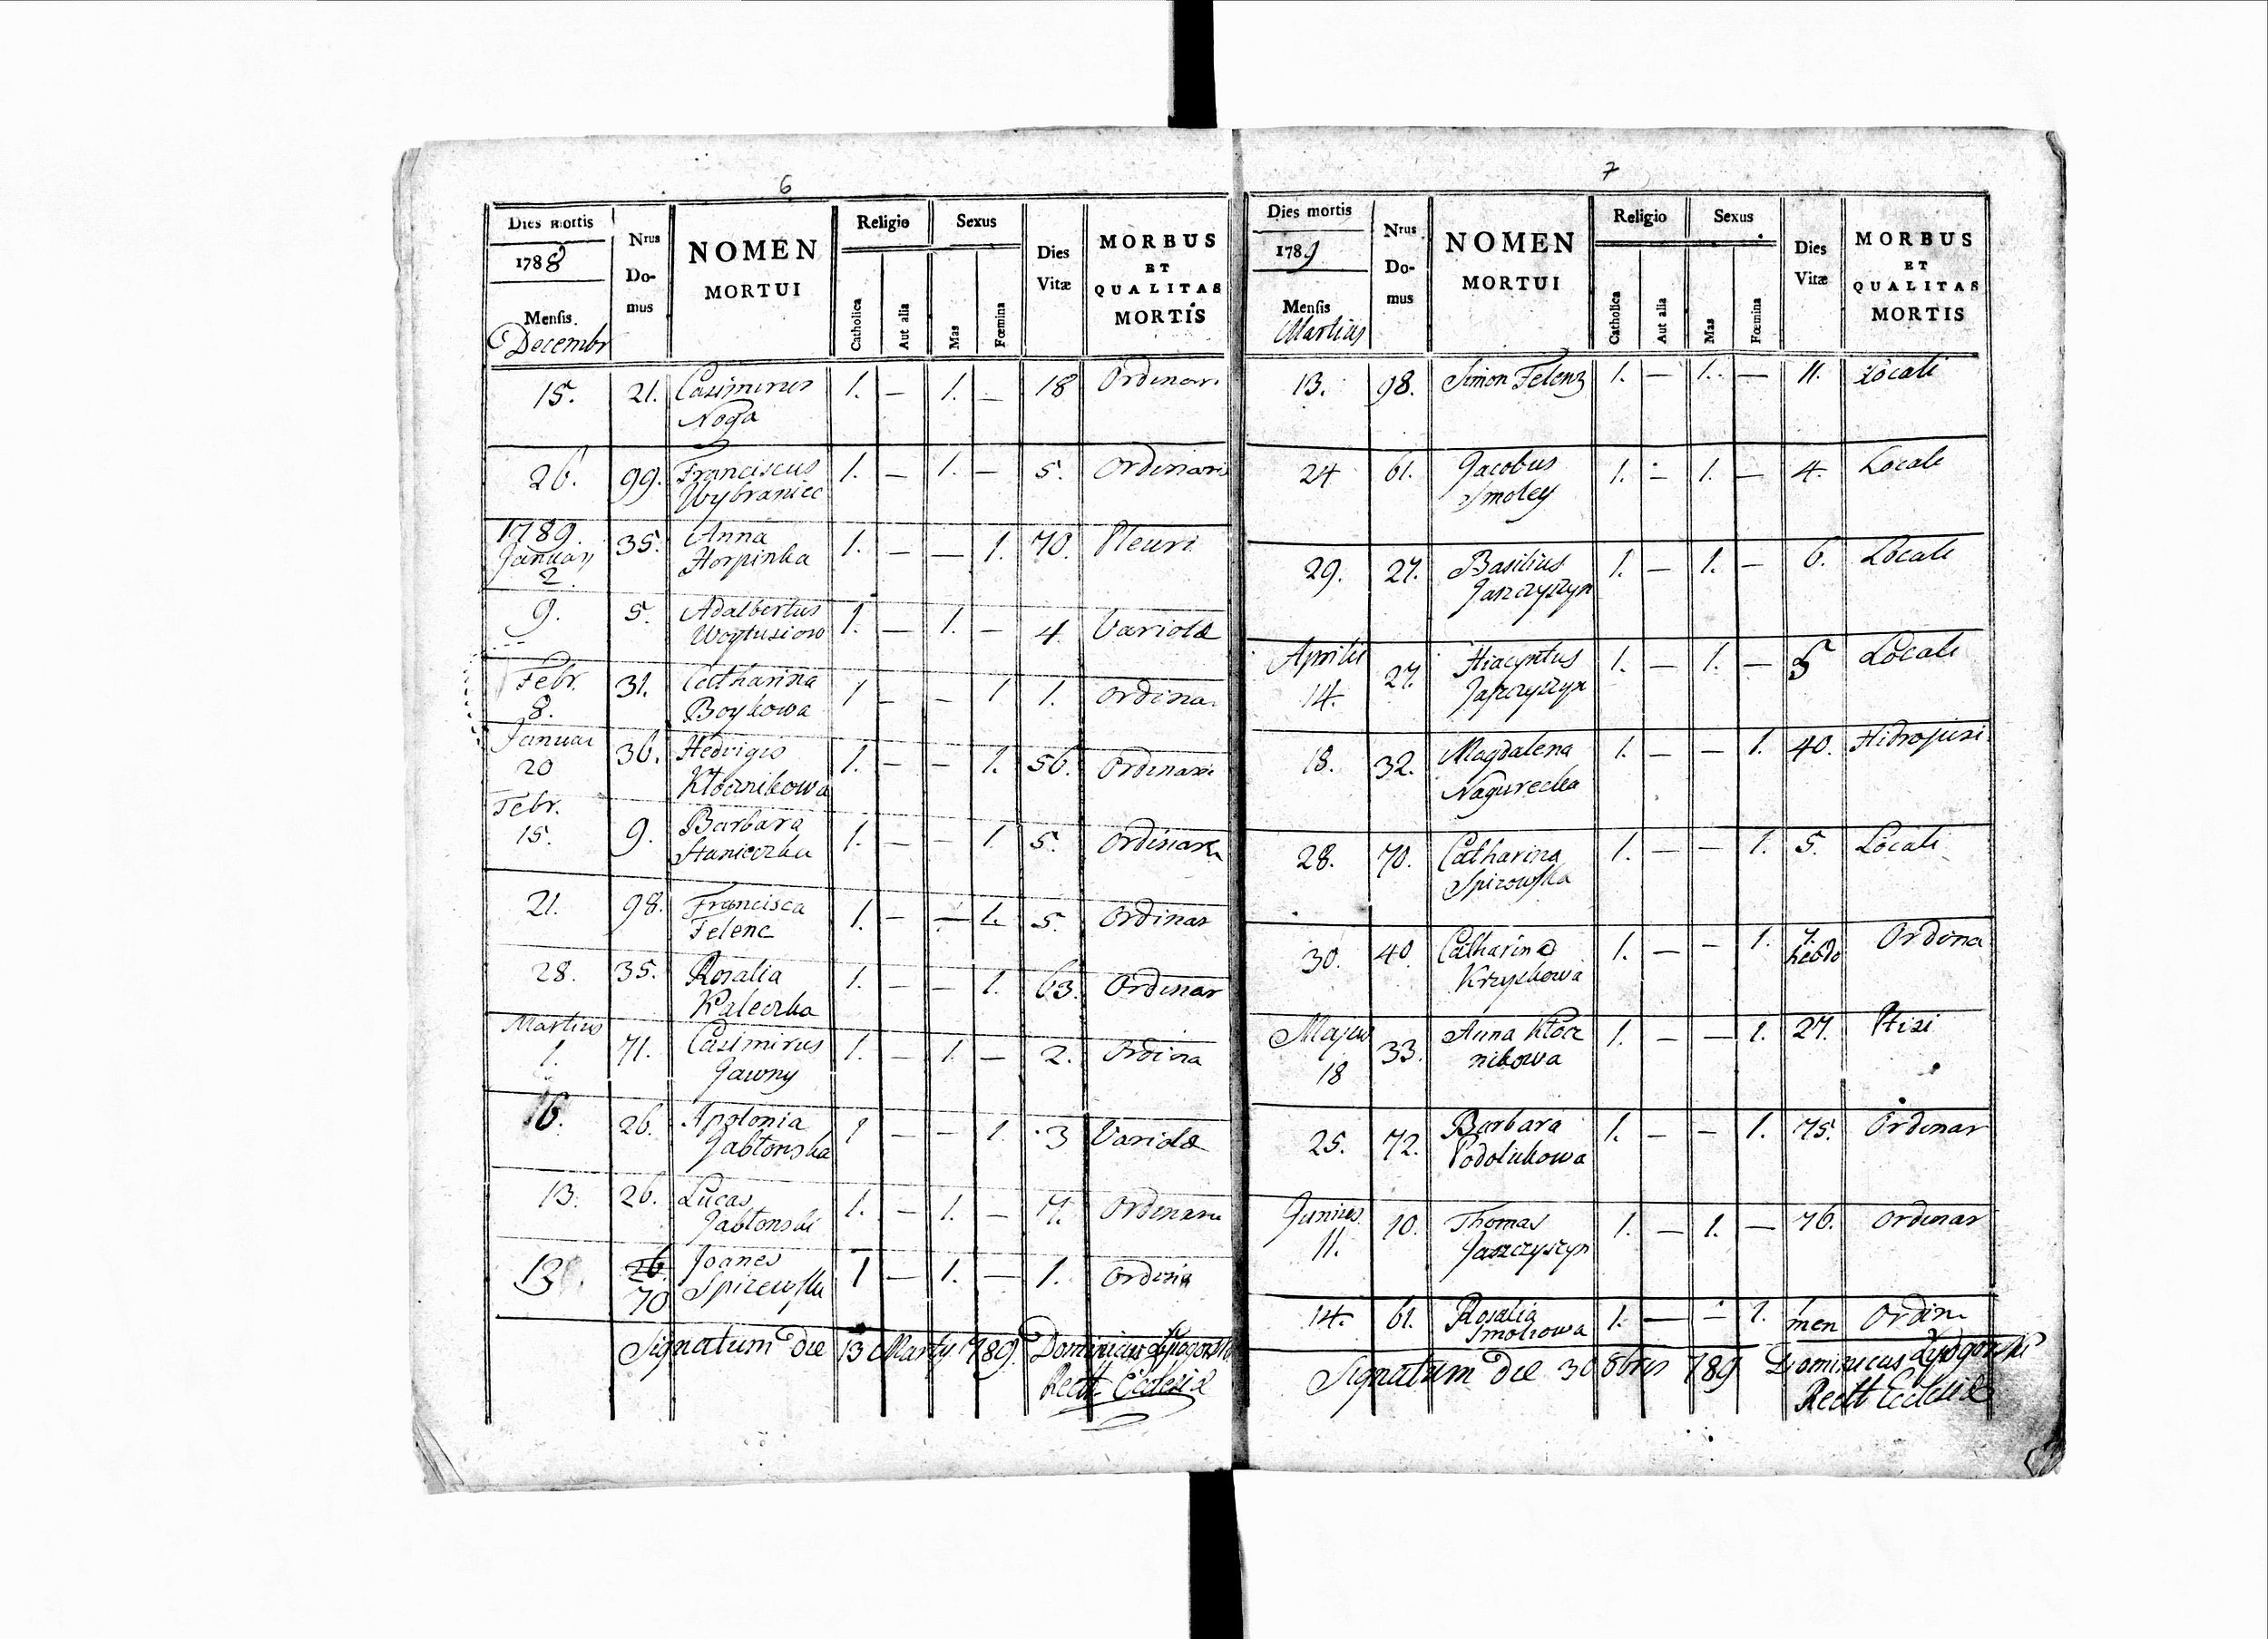 6
Dies mortis
1788
Mensis
Decembr
Nrus
Do-
mus
NOMEN
MORTUI
Religio
Catholica
Aut alia
Sexus
Mas
Fœmina
Dies
Vitæ
MORBUS
ET
QUALITAS
MORTIS
15. 21. Casimirus 1. — 1. — 18 Ordinari
Noga
26. 99. Franciscus 1. — 1. — 5. Ordinaris
Wybraniec
1789.
January 35. Anna 1. — — 1. 70. Pleuri
2. Horpinka
9. 5. Adalbertus 1. — 1. — 4. Variolæ
Woytusiow
Febr. 31. Catharina 1 — — 1 1. Ordina.
8. Boykowa
Januar 36. Hedvigis 1. — — 1. 56. Ordinari
20 Kłocznikowa
Febr.
15. 9. Barbara 1. — — 1. 5. Ordinari
Stanieczka
21. 98. Francisca 1. — — 1. 5. Ordinar
Felenc
28. 35. Rosalia 1. — — 1. 63. Ordinar
Kaleczka
Martius
1. 71. Casimirus 1. — 1. — 2. Ordina
Jawny
16. 26. Apolonia 1 — — 1. 3 Variolæ
Jabłonska
13. 26. Lucas 1. — 1. — 7. Ordinari
Jabłonski
13 26. Joanes 1 — 1. — 1. Ordina
70 Spirewski
Signatum die 13 Marty 789. Dominicus
Rectt Ecclesiæ
7
Dies mortis
1789
Mensis
Martius
Nrus
Do-
mus
NOMEN
MORTUI
Religio
Catholica
Aut alia
Sexus
Mas
Fœmina
Dies
Vitæ
MORBUS
ET
QUALITAS
MORTIS
13. 98. Simon Felenz 1. — 1. — 11. Locali
24 61. Jacobus 1. — 1. — 4. Locali
Smoley
29. 27. Basilius 1. — 1. — 6. Locali
Janczyszyn
Aprilis 27. Hiacyntus 1. — 1. — 5 Locali
14.
18. 32. Magdalena 1. — — 1. 40. Hidropisi
Nagurecka
28. 70. Catharina 1. — — 1. 5. Locali
Spirowska
30. 40 Catharina 1. — — 1. 7. Ordina
Krzyskowa hebdo
Majus 33. Anna Kłocz 1. — — 1. 27. Ptisi
18 nikowa
25. 72. Barbara 1. — — 1. 75. Ordinar
Podolukowa
Junius 10. Thomas 1. — 1. — 76. Ordinar
11. Janczyszyn
14. 61. Rosalia 1. — — 1. 1 Ordin
Smolowa men
Signatum die 30 8bris 789 Dominicus
Rectt Ecclesiæ